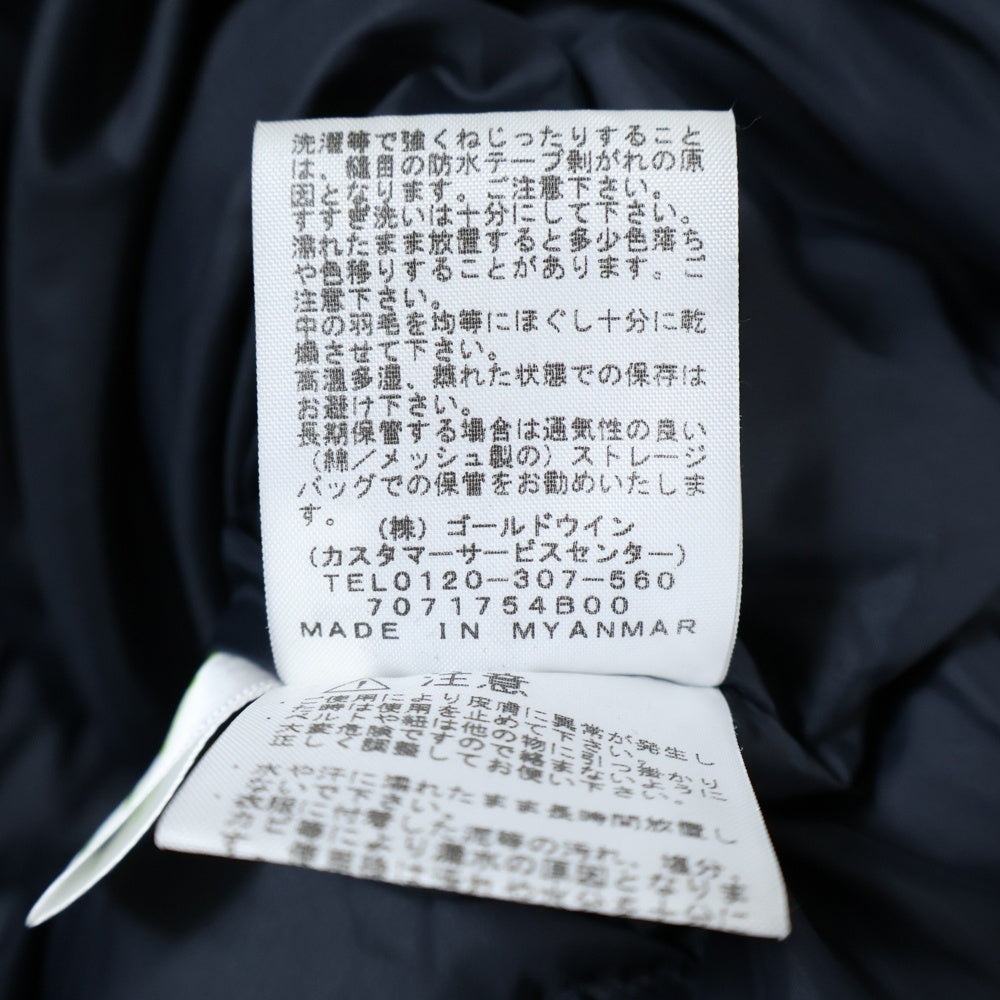 洗濯等で強くねじったりすること
は、縫目の防水テープ剥がれの原
因となります。ご注意下さい。
すすぎ洗いは十分にして下さい。
濡れたまま放置すると多少色落ち
や色移りすることがあります。ご
注意下さい。
中の羽毛を均等にほぐし十分に乾
燥させて下さい。
高温多湿、蒸れた状態での保存は
お避け下さい。
長期保管する場合は通気性の良い
(綿/メッシュ製の)ストレージ
バッグでの保管をお勧めいたしま
す。
(株)ゴールドウイン
(カスタマーサービスセンター)
TEL0120-307-560
7071754B00
MADE IN MYANMAR
注意
皮膚に異常が発生し
水や汗に濡れたまま長時間放置し
ないで下さい。
衣服に付着した泥等の汚れ、塩分、
カビ等により漏水の原因となりま